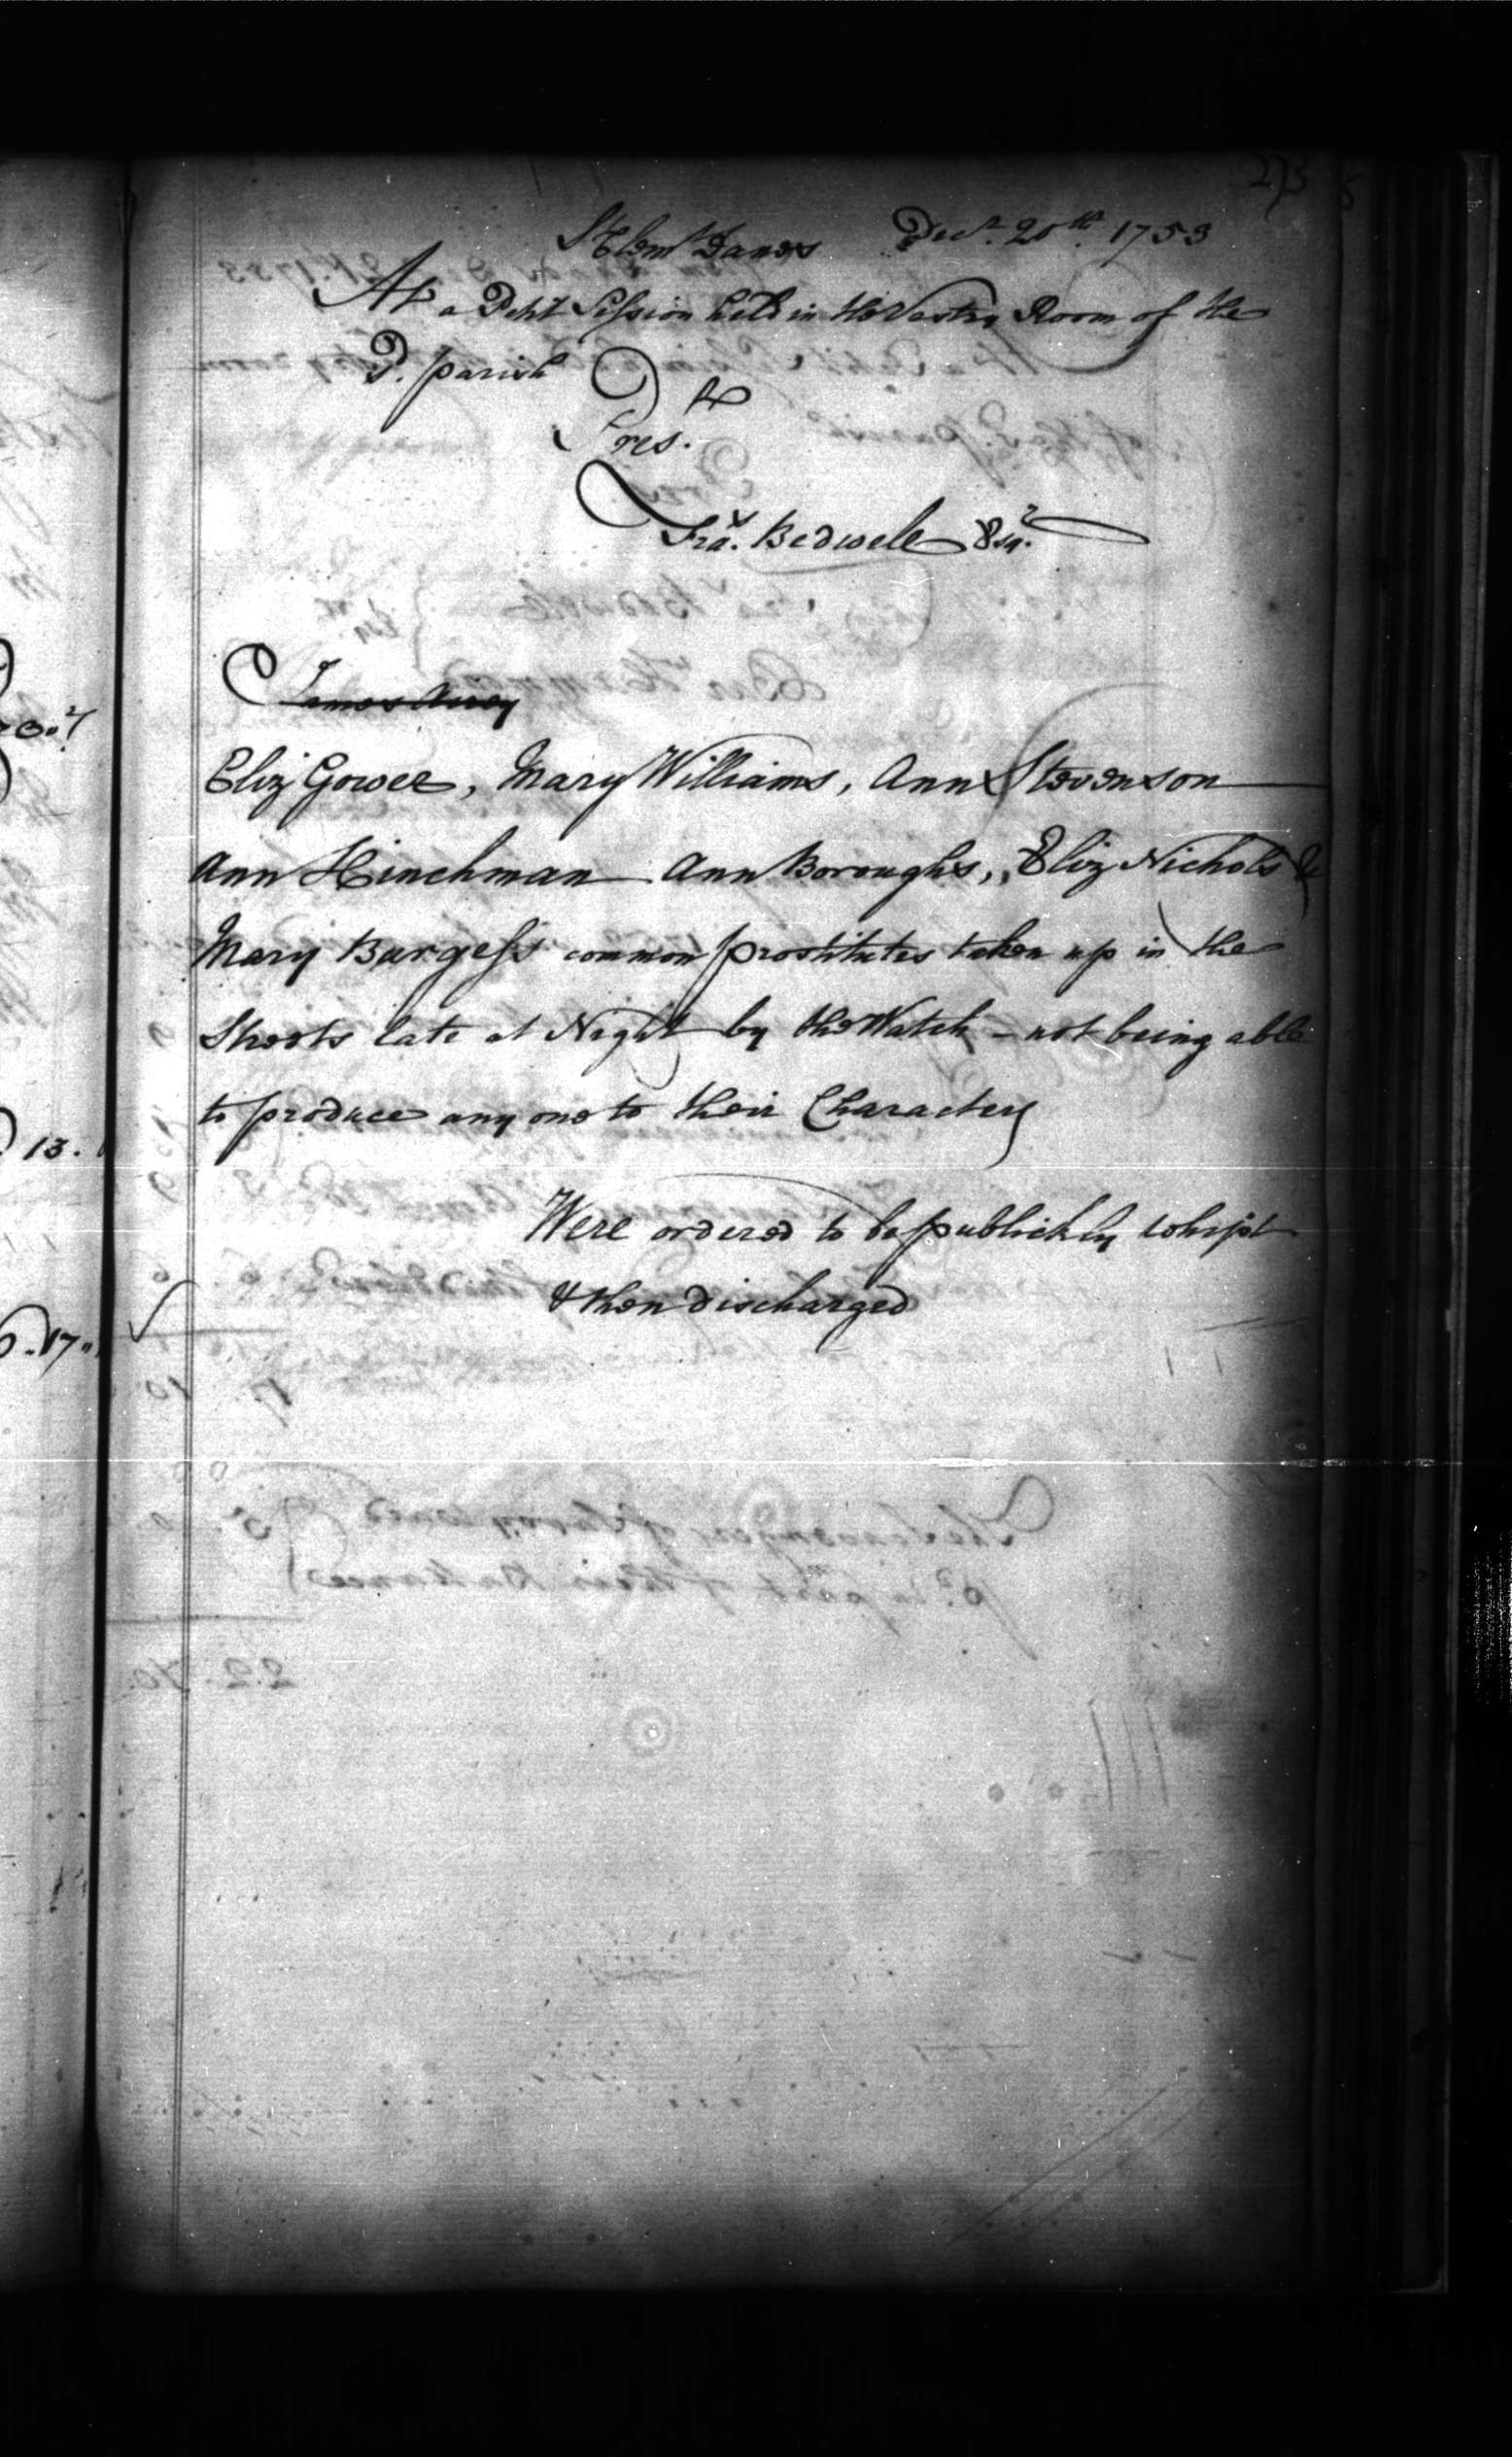 273
St Clemt Danes Decr. 20th. 1753
At a Petit Session held in the Vestry Room of the
P. parish
Prest
Fras. Bedwell Esqr.
Eliz Gower, Mary Williams, Ann Stevenson
Ann Hinchman Ann Boroughs, Eliz Nichols &
Mary Burgess common prostitutes taken up in the
Streets late at Night by the Watch - not being able
to produce any one to their Characters
Were ordered to be publickly whipt
& then discharged
13.
17